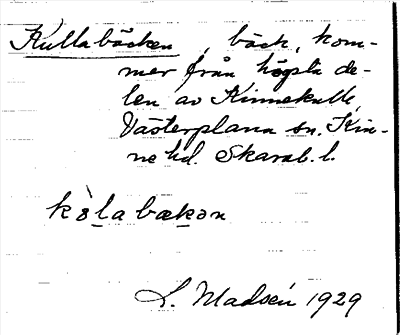 Kullabäcken, bäck, kom-
mer från högsta de-
len av Kinnekulle,
Västerplana sn. Kin-
ne hd. Skarab. l.
kòlabækən
L. Madsén 1929